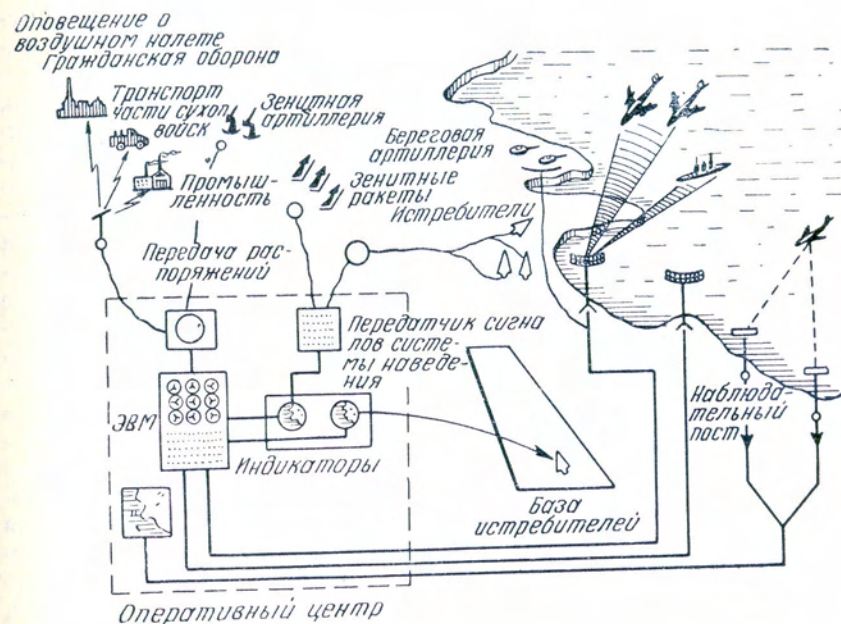 Оповещение о
воздушном налете
Гражданская оборона
Транспорт
части сухоп
войск
Зенитная
артиллерия
Береговая
артиллерия
Промыш-
ленность
Зенитные
ракеты
Истребители
Передача рас-
поряжений
Передатчик сигна
лов систе-
мы наведе-
ния
ЭВМ
Индикаторы
Наблюда-
тельный
пост
База
истребителей
Оперативный центр